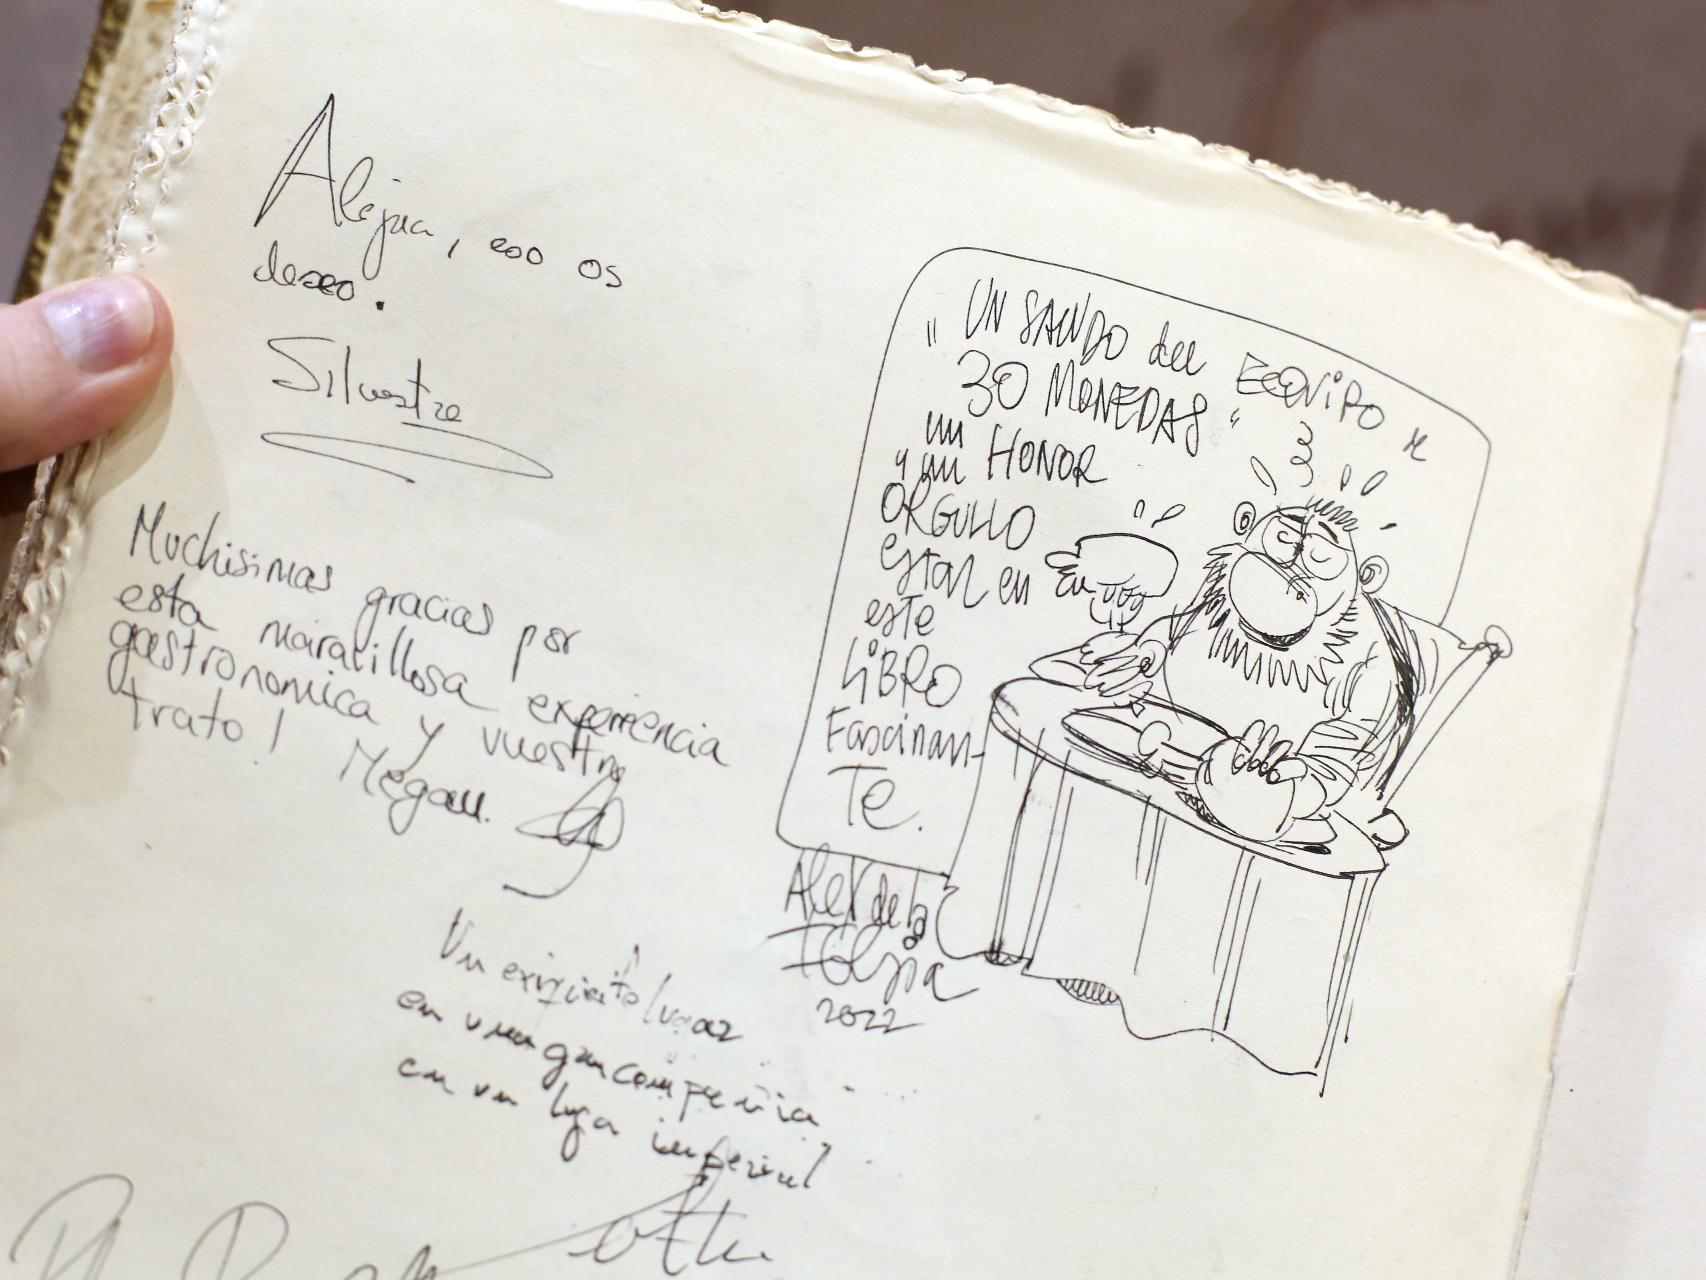 Alegria, eso os
deseo.
Silvestre
Muchisimas gracias por
esta maravillosa experiencia
gastronomica y vuestro
trato! Megan.
Un exquisito lugar
en una gran compañia
en un lugar imperial
"UN SALUDO del EQUIPO de
30 MONEDAS"
un HONOR
y un
ORGULLO
estar en
este
LIBRO
Fascinan-
Te.
Alex de la
Iglesia
2022